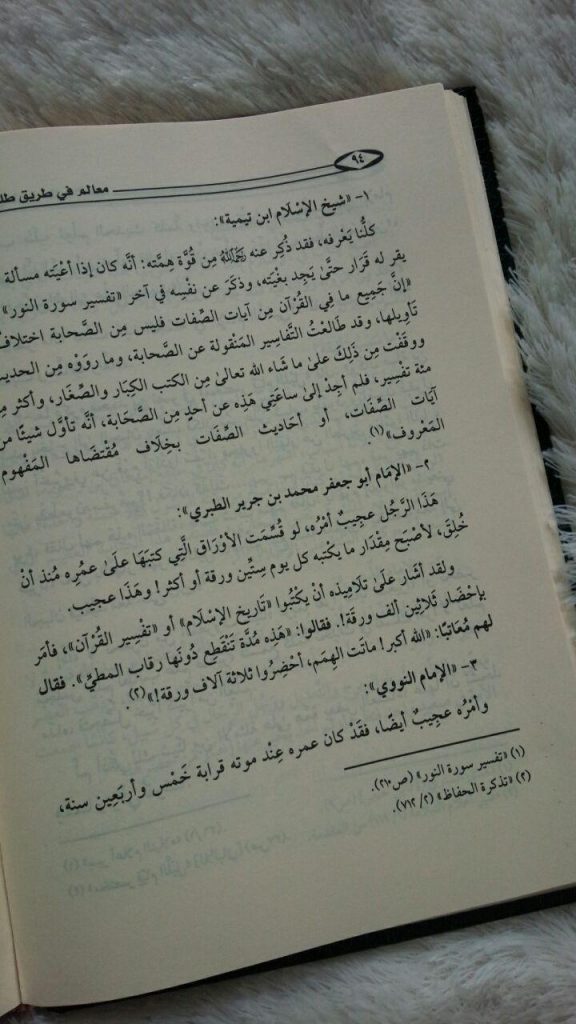 ٩٤
معالم في طريق طلـ
١- «شيخ الإسْلَام ابن تيمية»:
كلُّنا يَعْرفه، فقد ذُكِر عنه رَحِمَهُ اللهُ مِن قُوَّة هِمَّته: أنَّه كان إذا أعْيَته مسألة
يقر له قَرَار حتَّىٰ يَجِد بغْيَته، وذكَرَ عن نفْسِه في آخر «تفسير سورة النور»
«إنَّ جَمِيع ما فِي القُرْآن مِن آيات الصِّفات فليس مِن الصَّحابة اختلاف
تَأوِيلها، وقد طَالعْتُ التَّفاسِير المَنْقُولة عن الصَّحابة، وما روَوْه مِن الحديـ
ووقفْت مِن ذَلِكَ علىٰ ما شَاء الله تعالىٰ مِن الكتب الكِبَار والصِّغَار، وأكثر مِـ
مئة تفْسِير، فلم أجِدْ إلىٰ ساعَتِي هَذِه عن أحدٍ مِن الصَّحَابة، أنَّه تأوَّل شيئًا من
آيَات الصِّفَات، أو أحَاديث الصِّفَات بخِلَاف مُقْتضَاها المَفْهوم
المَعْروف»(١).
٢- «الإمَام أبو جعفر محمد بن جرير الطبري»:
هَذَا الرَّجُل عجِيبٌ أمْرُه، لو قُسِّمَت الأوْرَاق الَّتِي كتبَهَا علَىٰ عمُرِه مُنذ أنْ
خُلِقَ، لأصْبَح مِقْدَار ما يكْتبه كل يوم سِتِّين ورقة أو أكثر! وهَذَا عجيب.
ولقد أشَار علَىٰ تلَامِيذه أنْ يكْتُبوا «تَارِيخ الإسْلَام» أو «تفْسِير القُرْآن»، فأمَر
بإحْضَار ثَلَاثين ألف ورقَة!. فقالوا: «هَذِه مُدَّة تَنْقَطِع دُونَها رقاب المطيِّ». فقال
لهم مُعَاتبًا: «الله أكبر! ماتَت الهِمَم، أحْضِرُوا ثلاثة آلاف ورقة!»(٢).
٣- «الإمام النووي»:
وأمْرُه عجِيبٌ أيضًا، فقَدْ كان عمره عِنْد موته قرابة خَمْس وأربَعِين سنة،
(١) «تفسير سورة النور» (ص٢١٠).
(٢) «تذكرة الحفاظ» (٢/ ٧١٢).